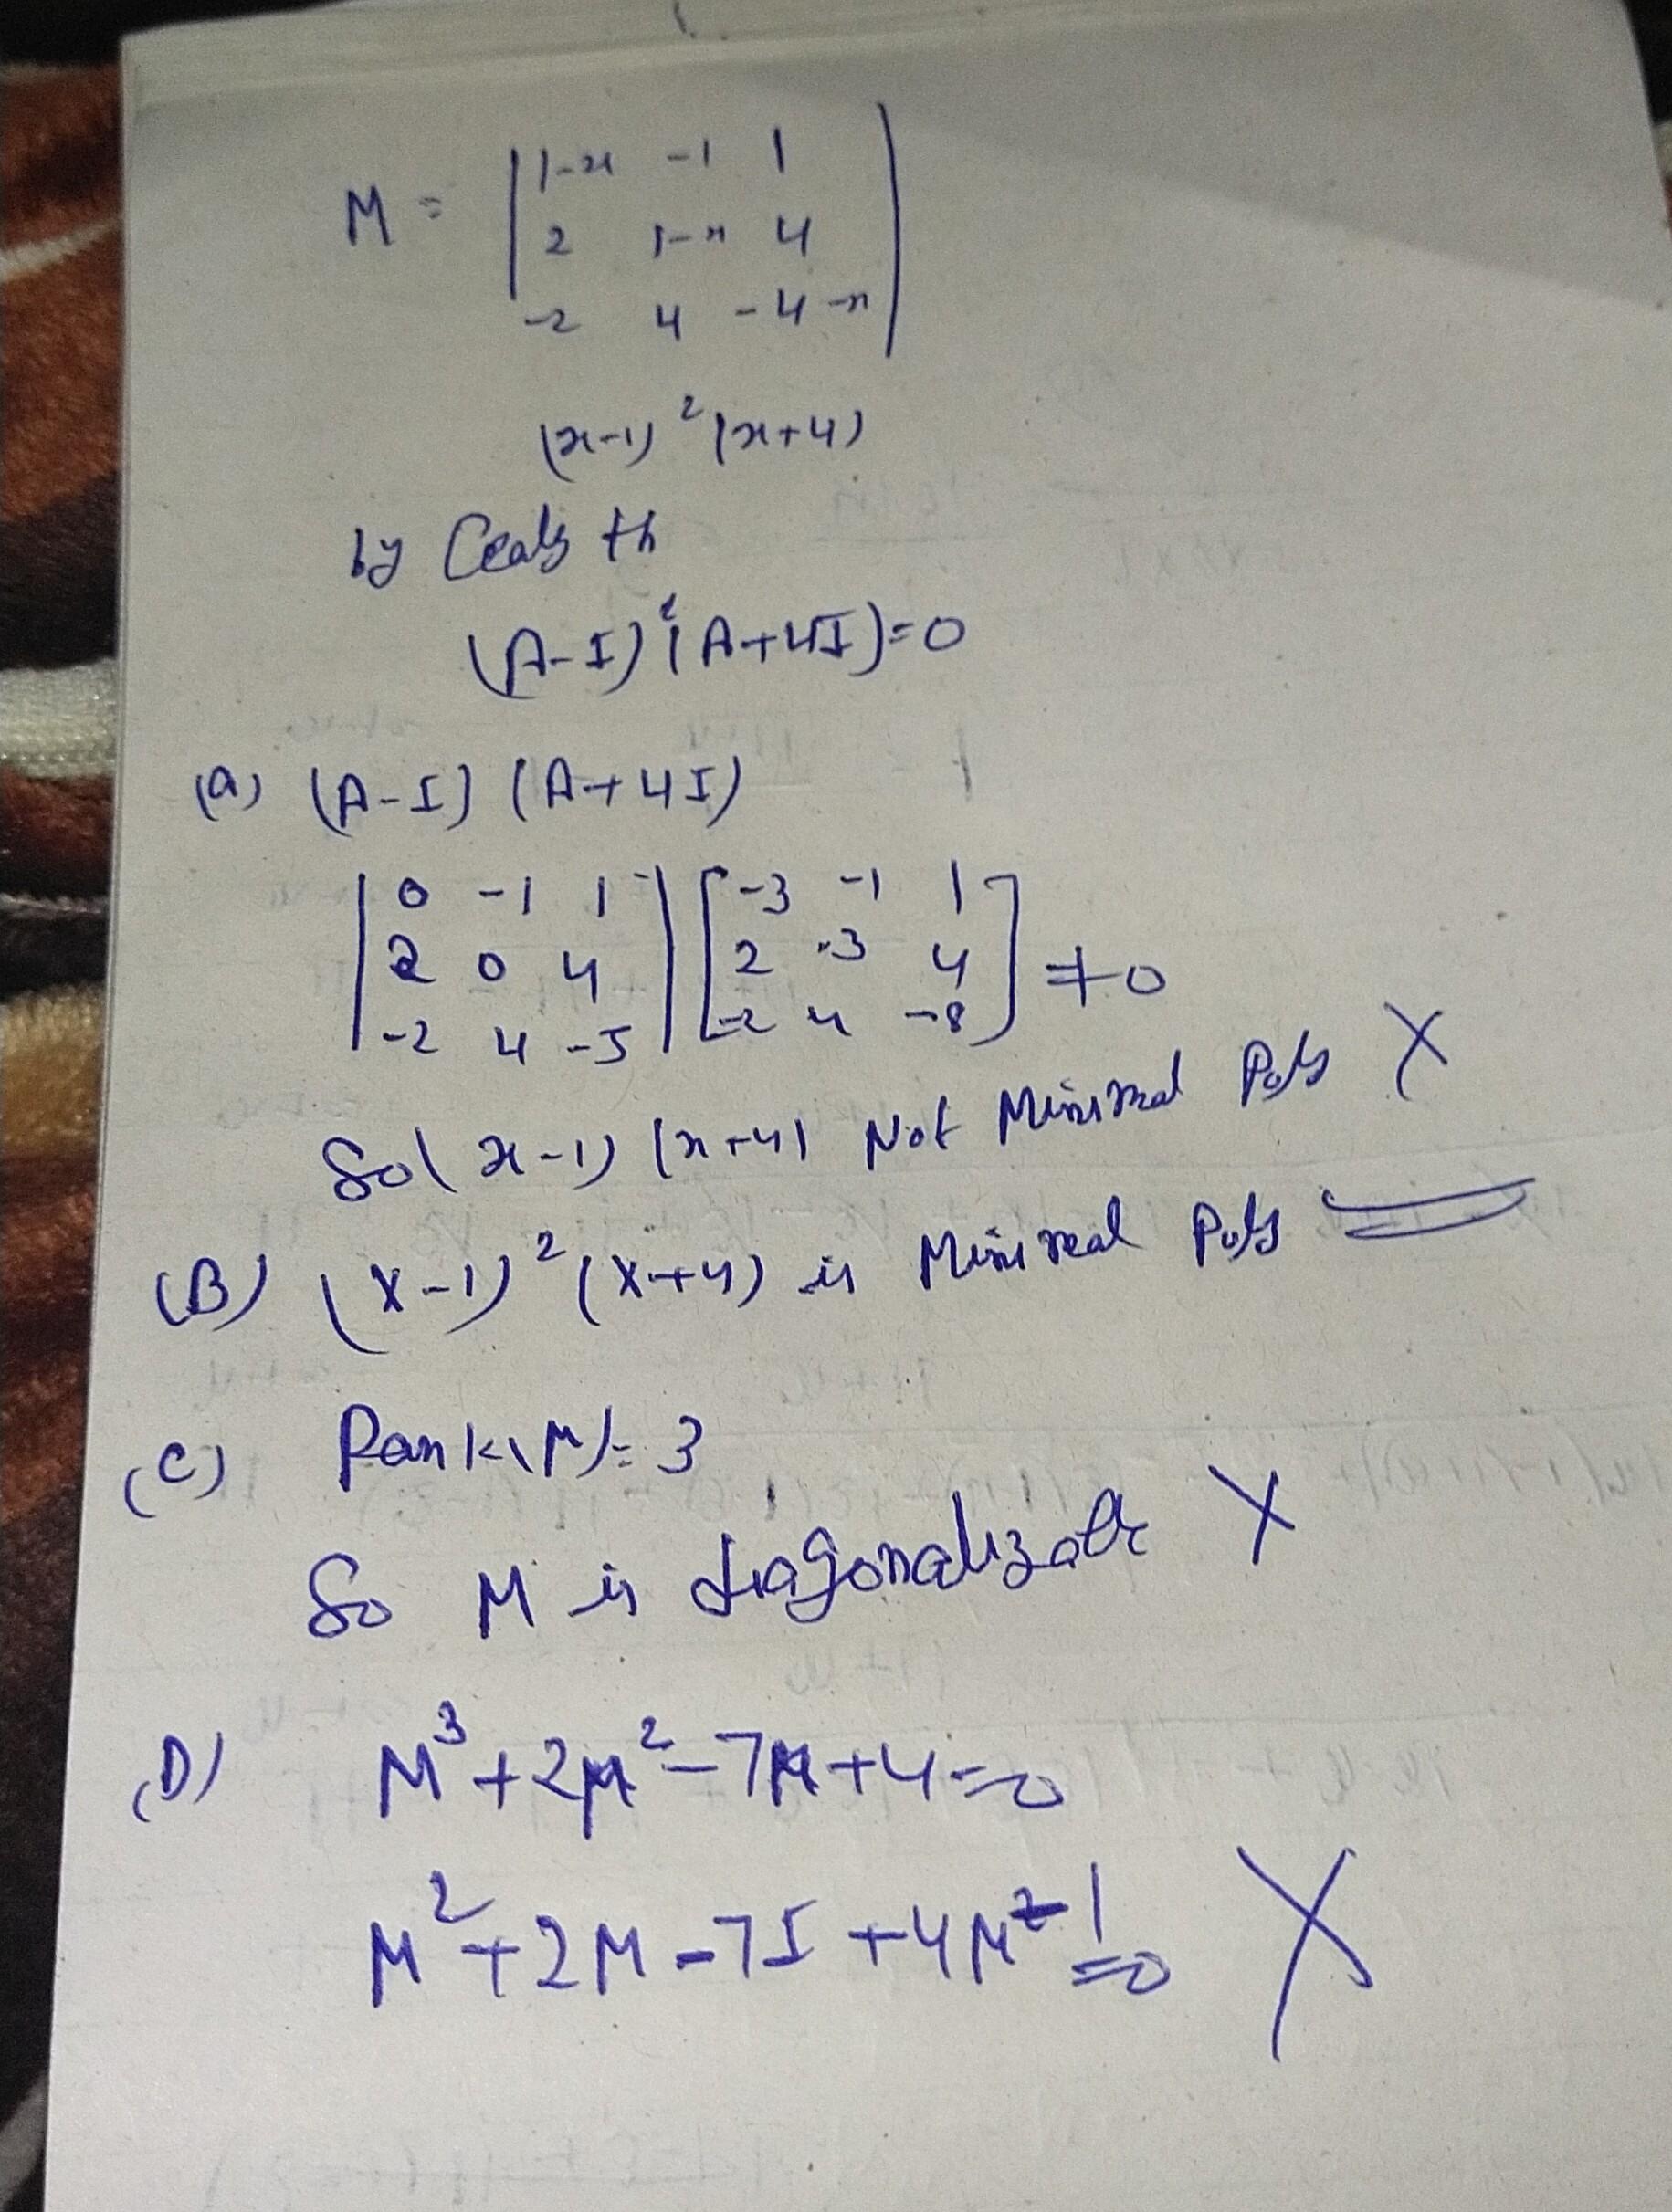 M = | 1-x -1 1 |
2 1-x 4
-2 4 -4-x
(x-1)² (x+4)
by th
(A-I)² (A+4I)=0
(a) (A-I) (A+4I)
| 0 -1 1 | [ -3 -1 1 ]
2 0 4 2 -3 4 ≠0
-2 4 -5 -2 4 -8
So (x-1) (x+4) Not Minimal Poly X
(B) (X-1)² (X+4) is Minimal Poly
(C) Rank(M)= 3
So M is diagonalizable X
(D) M³+2M²-7M+4=0
M²+2M-7I+4M⁻¹=0 X